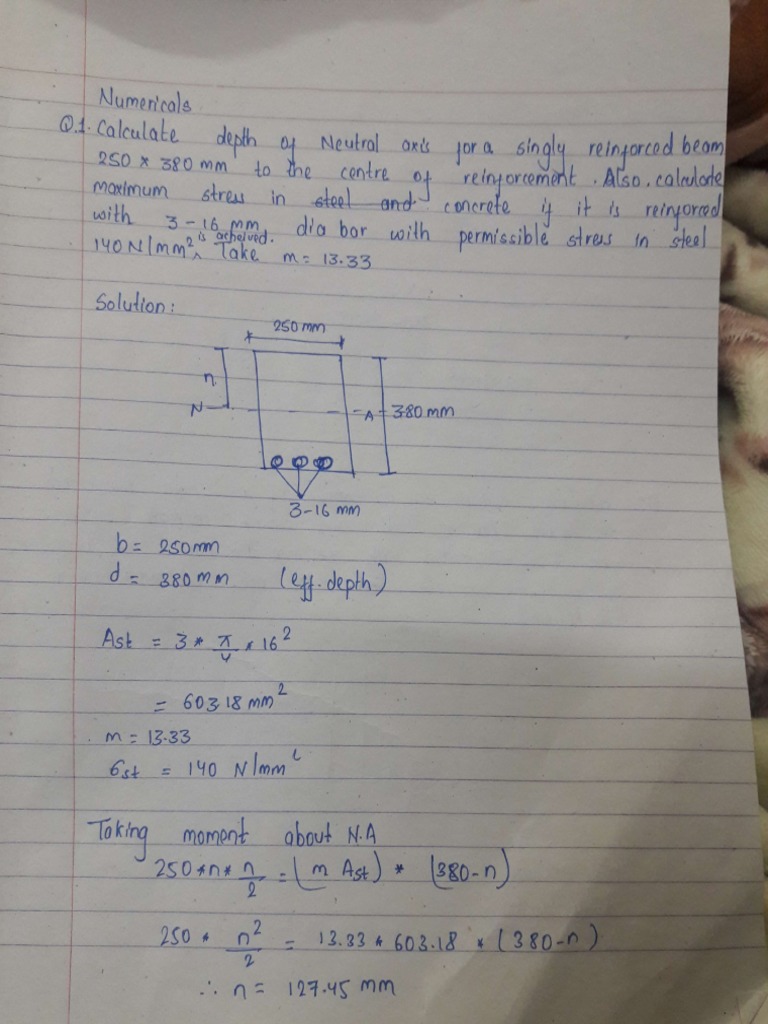 Numericals
Q.1. Calculate depth of Neutral axis for a singly reinforced beam
250 * 380 mm to the centre of reinforcement. Also, calculate
maximum stress in steel and concrete if it is reinforced
with 3-16 mm dia bar with permissible stress in steel
is acheived.
140 N/mm². Take m = 13.33
Solution:
250 mm
n
N A 380 mm
3-16 mm
b = 250mm
d = 380 mm (eff. depth)
Ast = 3 * π/4 * 16²
= 603.18 mm²
m = 13.33
σst = 140 N/mm²
Taking moment about N.A
250*n*n/2 = (m Ast) * (380-n)
250 * n²/2 = 13.33 * 603.18 * (380-n)
∴ n = 127.45 mm